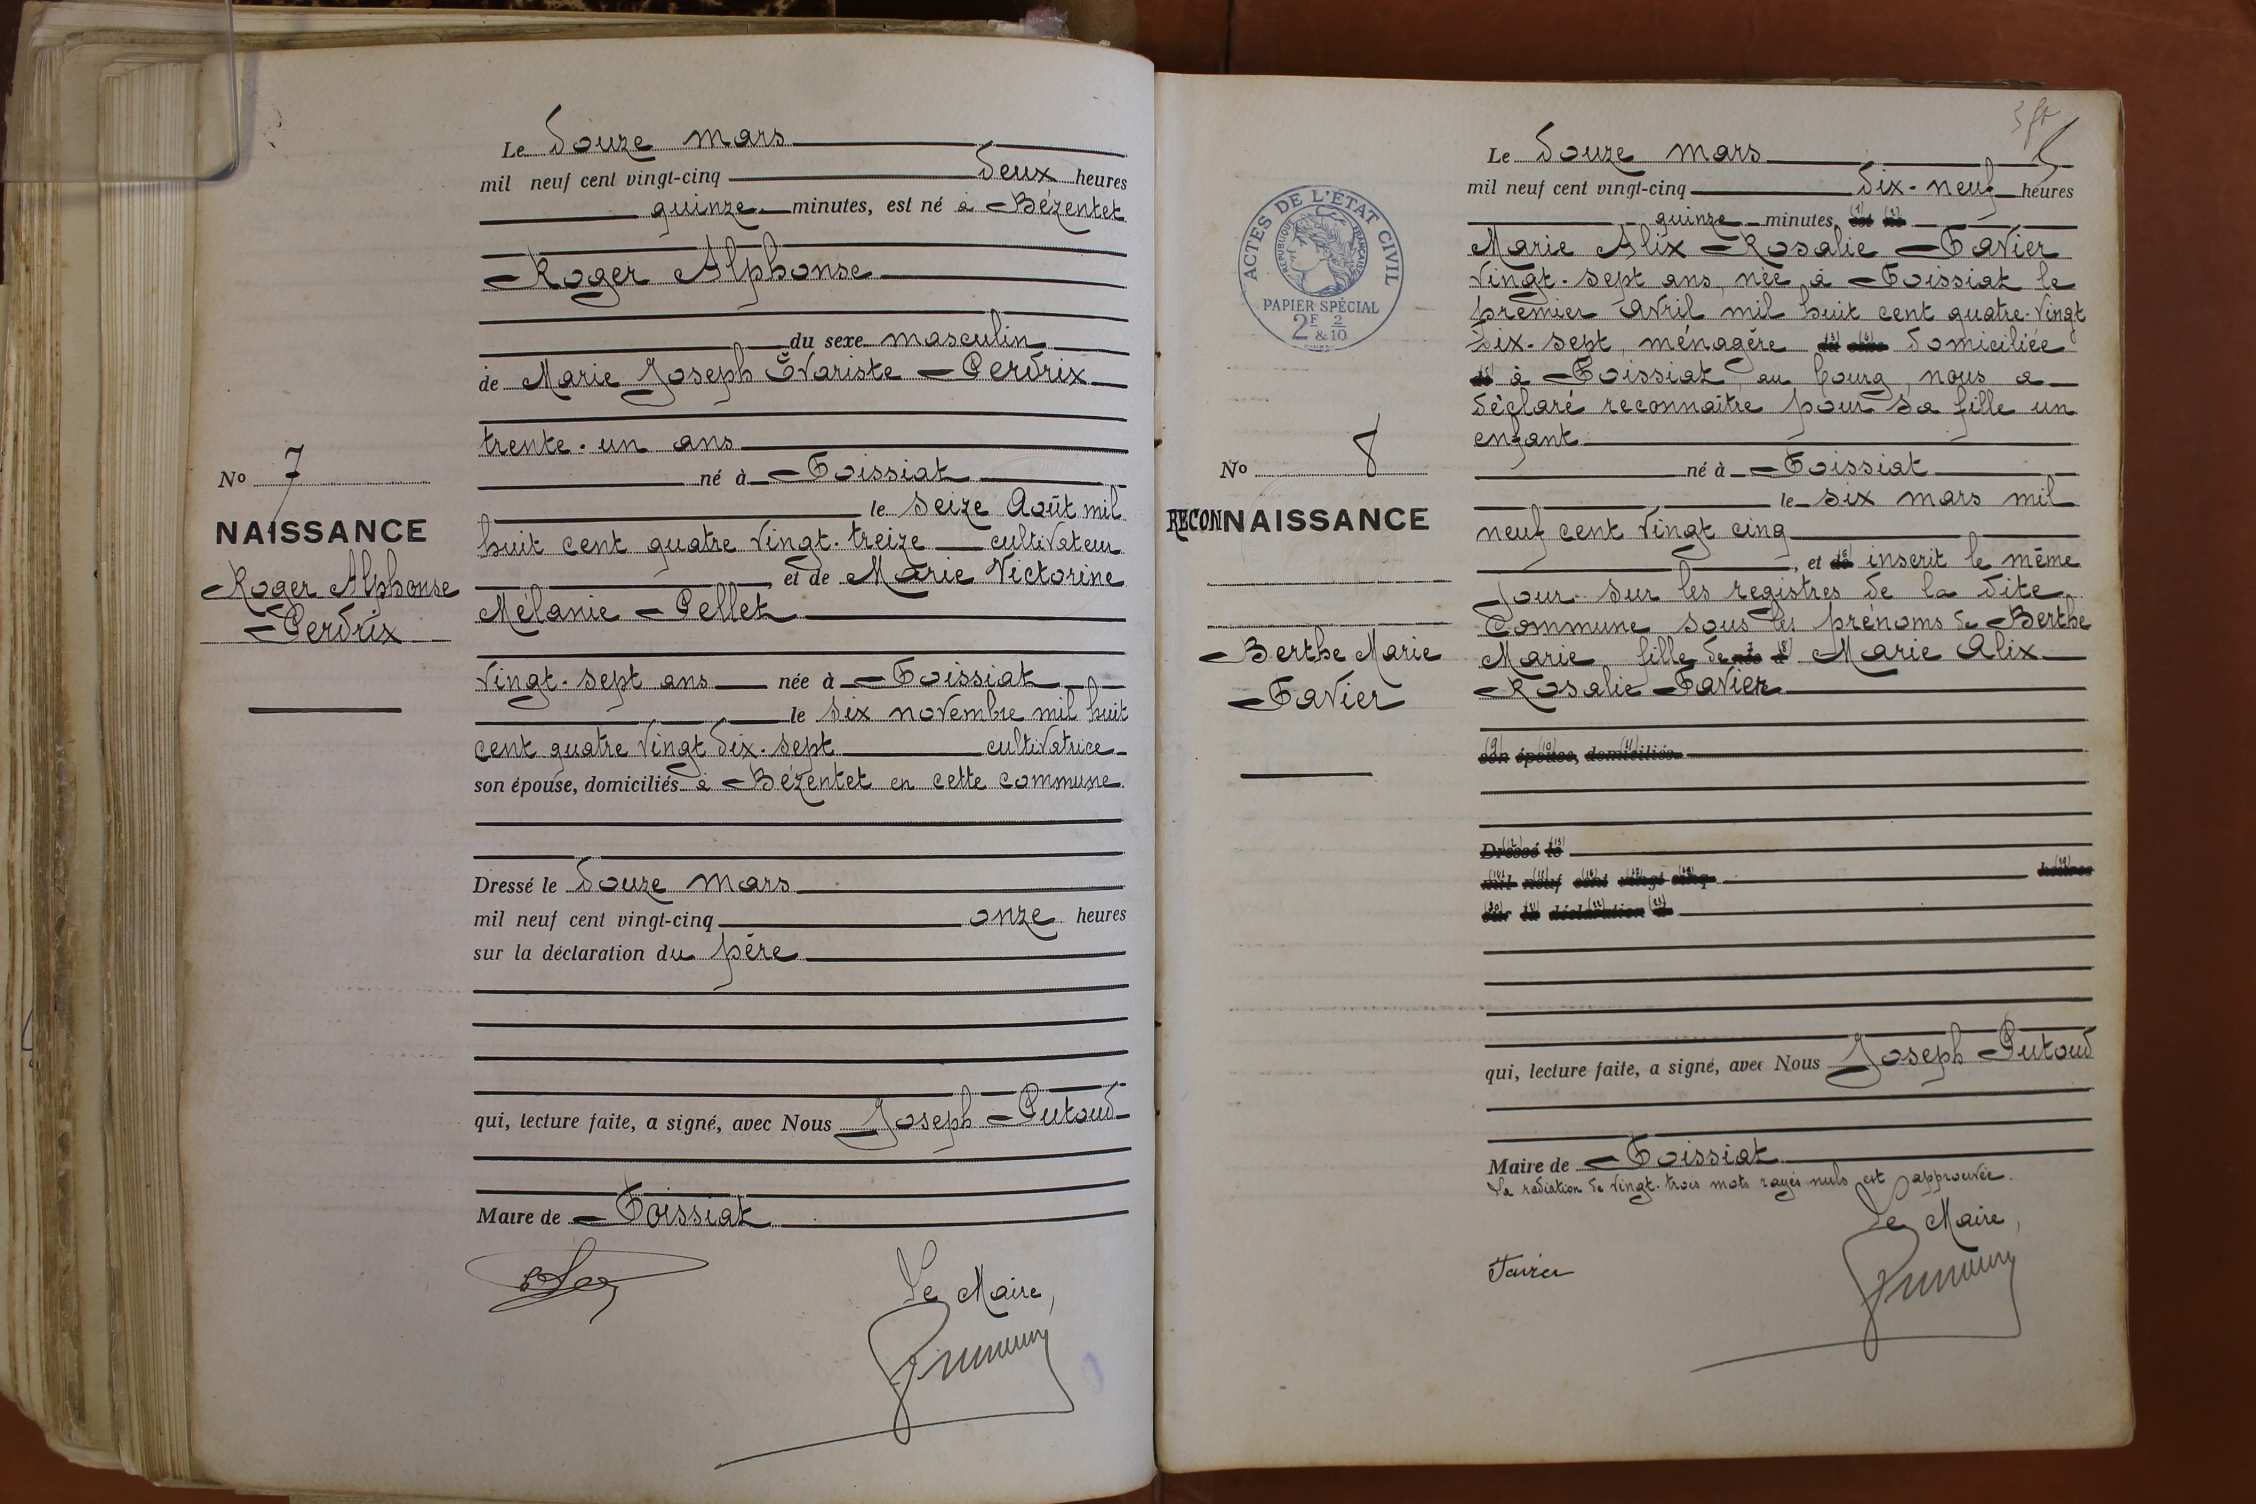 Le Douze mars
mil neuf cent vingt-cinq deux heures
quinze minutes, est né à Bézentet
Roger Alphonse
du sexe masculin
de Marie Joseph Évariste Perdrix
trente-un ans
né à Foissiat
le seize Août mil
huit cent quatre vingt-treize cultivateur
, et de Marie Victorine
Mélanie Pellet
vingt-sept ans née à Foissiat
le six novembre mil huit
cent quatre vingt dix-sept cultivatrice
son épouse, domiciliés à Bézentet en cette commune
Dressé le douze mars
mil neuf cent vingt-cinq onze heures
sur la déclaration du père
qui, lecture faite, a signé, avec Nous Joseph Putoud
Maire de Foissiat
Le Maire,
No 7
NAISSANCE
Roger Alphonse
Perdrix
Le Douze mars
mil neuf cent vingt-cinq dix-neuf heures
quinze minutes, (1) est (2) né
Marie Alix Rosalie Favier
vingt-sept ans, née à Foissiat le
premier avril mil huit cent quatre-vingt
dix-sept, ménagère domiciliée
à Foissiat, au bourg, nous a
déclaré reconnaître pour sa fille un
enfant
né à Foissiat
le six mars mil
neuf cent vingt cinq
, et de inscrit le même
jour sur les registres de la dite
Commune sous les prénoms de Berthe
Marie, fille de née à Marie Alix
Rosalie Favier
son épouse, domiciliés
Dressé le
mil neuf cent vingt-cinq heures
sur la déclaration d
qui, lecture faite, a signé, avec Nous Joseph Putoud
Maire de Foissiat
La radiation de vingt-trois mots rayés nuls est approuvée.
Le Maire,
Favier
ACTES DE L'ÉTAT CIVIL
RÉPUBLIQUE FRANÇAISE
PAPIER SPÉCIAL
2F & 2/10
No 8
RECONNAISSANCE
Berthe Marie
Favier